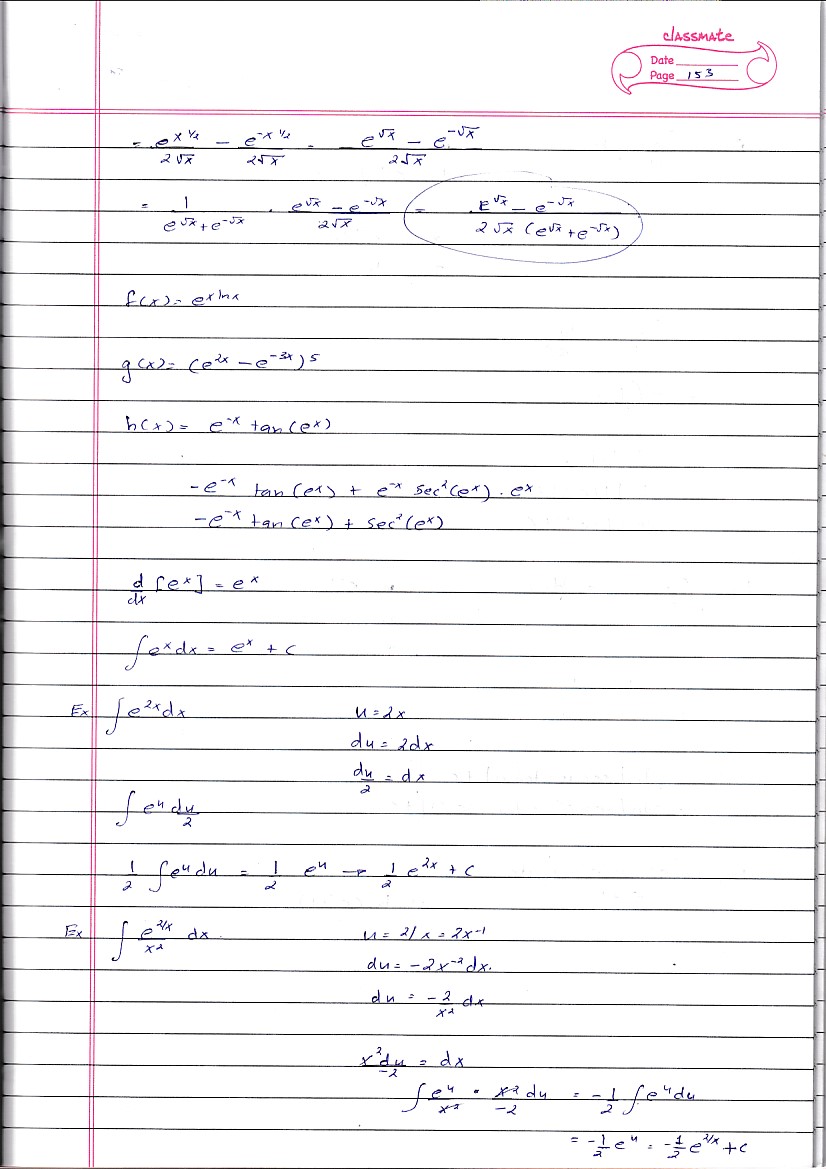 classmate
Date
Page 153
= e^{x^{1/2}}/2√x − e^{-x^{1/2}}/2√x = e^{√x} − e^{-√x}/2√x
= 1/(e^{√x} + e^{-√x}) · (e^{√x} − e^{-√x})/2√x = (e^{√x} − e^{-√x})/(2√x (e^{√x} + e^{-√x}))
f(x) = e^{x ln x}
g(x) = (e^{2x} − e^{-3x})^5
h(x) = e^{-x} tan(e^x)
-e^{-x} tan(e^x) + e^{-x} sec²(e^x) · e^x
-e^{-x} tan(e^x) + sec²(e^x)
d/dx [e^x] = e^x
∫e^x dx = e^x + c
Ex ∫e^{2x} dx u = 2x
du = 2dx
du/2 = dx
∫e^u du/2
1/2 ∫e^u du = 1/2 e^u → 1/2 e^{2x} + c
Ex ∫ e^{2/x}/x² dx u = 2/x = 2x^{-1}
du = -2x^{-2} dx.
du = -2/x² dx
x²du/-2 = dx
∫ e^u/x² · x²/-2 du = -1/2 ∫e^u du
= -1/2 e^u = -1/2 e^{2/x} + c